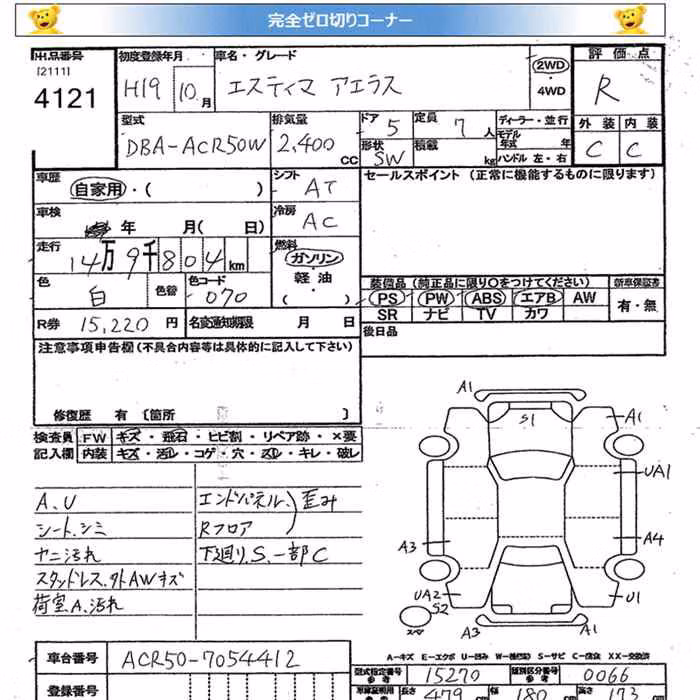 完全ゼロ切りコーナー
出品番号 初度登録年月 車名・グレード 評価点
[2111]
4121 H19 10月 エスティマ アエラス 2WD R
・4WD
型式 排気量 ドア 5 定員 7人 ディーラー・並行 外装 内装
モデル年式 年
DBA-ACR50W 2,400cc 形状 SW 積載 kg ハンドル 左・右 C C
車歴 シフト セールスポイント(正常に機能するものに限ります)
自家用・( ) AT
車検 年 月( 日) 冷房 AC
走行 燃料
14万9千804km ガソリン・
軽油・
( )
色 色替 色コード 装備品(純正品に限り○をつけてください) 新車保証書
白 070 PS PW ABS エアB AW 有・無
SR ナビ TV カワ
R券 15,220円 名変通知期限 月 日 後日品
注意事項申告欄(不具合内容等は具体的に記入して下さい)
修復歴 有〔箇所 〕
検査員 FW キズ・飛石・ヒビ割・リペア跡・×要
記入欄 内装 キズ・汚レ・コゲ・穴・スレ・キレ・破レ
A、U
シート、シミ
ヤニ汚れ
スタッドレス、外AWキズ
荷室A、汚れ
エンドパネル、
Rフロア 歪み
下廻りS、一部C
A1
S1
A1
UA1
A3
A4
UA2
S2
U1
スペア
A3
A1
A-キズ E-エクボ U-凹み W-補修跡 S-サビ C-腐食 XX-交換済
車台番号 ACR50-7054412
登録番号
型式指定番号 参考 15270 類別区分番号 参考 0066
長さ 479 cm 幅 180 cm 高さ 173 cm